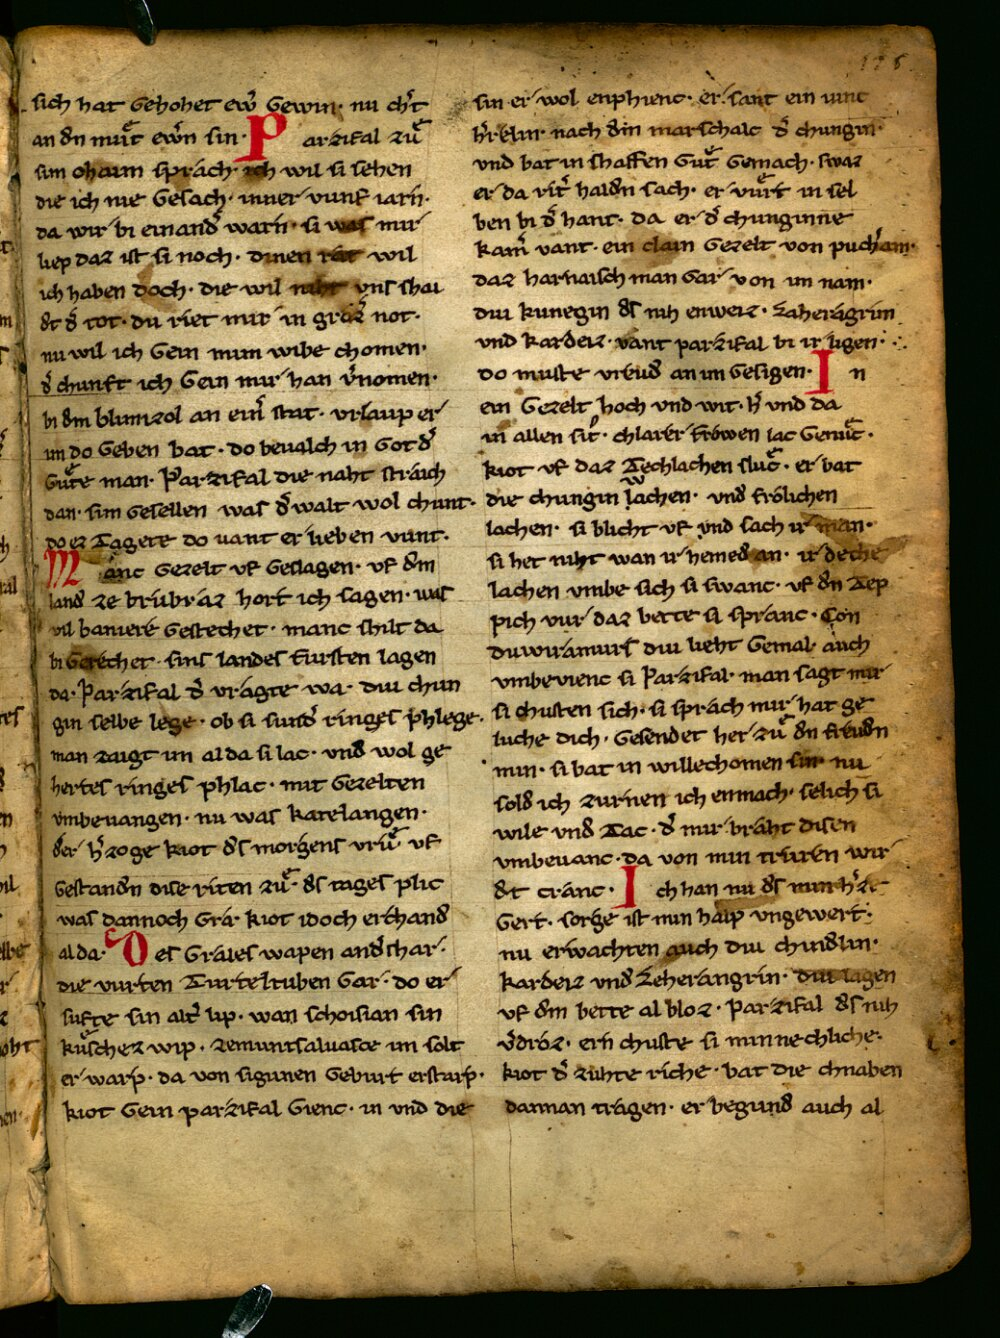 178
sich hat gehohet ewͤr gewin· nu chert
an dn muͤt ewͤrn sin· P arzifal zuͤ
sim ohaim sprach· ich wil si sehen
die ich nie gesach· inner vunf iarn·
da wir bi einandͤ warn· si was mir
liep daz ist si noch· dinen rat wil
ich haben doch· die wil niht vns shai
dt dͤ tot· du riet mir in groz not·
nu wil ich gein minn wibe chomen·
dͤ chunft ich gein mir han vͤnomen·
bi dm blimizol an einͤ stat· vrlaup er
im do geben bat· do bevalch in got dͤ
guͤte man· Parzifal die naht straich
dan· sim gesellen was dͤ walt wol chunt·
do ez tagete do vant er lieben vunt·
M anc gezelt vf geslagen· vf dm
land ze brubraz hort ich sagen· was
vil baniere gestechet· manc shilt da
bi gerechet· sins landes fursten lagen
da· Parzifal dͤ vragte wa· diu chun
gin selbe lege· ob si sundͤ ringes phlege·
man zaigt im alda si lac· vnd wol ge
hertes ringes phlac· mit gezelten
vmbevangen· nu was katelangen·
der hͤzoge kiot ds morgens vruͤ vf
gestandn dise riten zuͤ· ds tages plic
was dannoch gra· kiot idoch erchand
alda· D es grales wapen and shar·
die vurten turteltuben gar· do er
sufte sin altͤ lip· wan schoisian sin
kuͤschez wip· zemuntsaluasce im solt
erwarp· da von sigunen geburt erstarp·
kiot gein parzifal gienc· in vnd die
sin er wol enphienc· er sant ein iunc
hͤrelin· nach din marschalc dͤ chungin·
vnd bat in shaffen guͤt gemach· swaz
er da ritͤ haldn sach· er vuͤrt in sel
ben bi dͤ hant· da er dͤ chunginne
kamͤ vant· ein clain gezelt von pucheram·
daz harnaisch man gar von im nam·
diu kunegin ds nih enweiz· Zaheragrim
vnd kardeiz· vant parzifal bi ir ligen·
do muste vreud an im gesigen· I n
ein gezelt hoch vnd wit· hͤ vnd da
in allen sit· clarer frowen lac genuͤc·
kiot vf daz dechlachen sluͤc· er bat
die chungin wachen· vnd frolichen
lachen· si blicht vf vnd sach ir man·
si het niht wan ir hemed an· ir deche
lachen vmbe sich si swanc· vf dn tep
pich vur daz bette si spranc· Con
duwiramurs diu lieht gemal auch
vmbevienc si Parzifal· man sagt mir
si chusten sich· si sprach mir hat ge
luche dich· gesendet her zuͤ dn freudn
min· si bat in willechomen sin nu
sold ich zurnen ich enmach· selich si
wile vnd tac· dͤ mir braht disen
vmbevanc· da von min truren wir
dt cranc· I ch han nu ds min hͤze
gert· sorge ist min halp vngewert·
nu erwachten auch diu chindlin·
kardeiz vnd Zeherangrin· diu lagen
vf dm bette al bloz· Parzifal ds nih
vͤdroz· ern chuste si minnechliche·
kiot dͤ zuhte riche· bat die chnaben
dannan tragen· er begund auch al